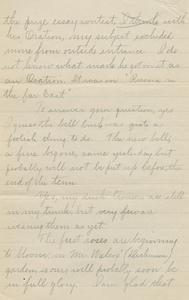 the prize essay contest, I think with
his Oration, my subject excluded
mine from outside entrance. I do
not know what mark he got on it as
an Oration. It was on "Russia in
the far East"
To answer your question, yes
I guess the bell bust was quite a
foolish thing to do. The new bell,
a fine big one, came yesterday but
probably will not be put up before the
end of the term.
Yes, my duck trousers are still
in my trunk, but very few are
wearing them as yet.
The first roses are beginning
to bloom in Mr.
garden, some will probably soon be
in full glory. I am glad that